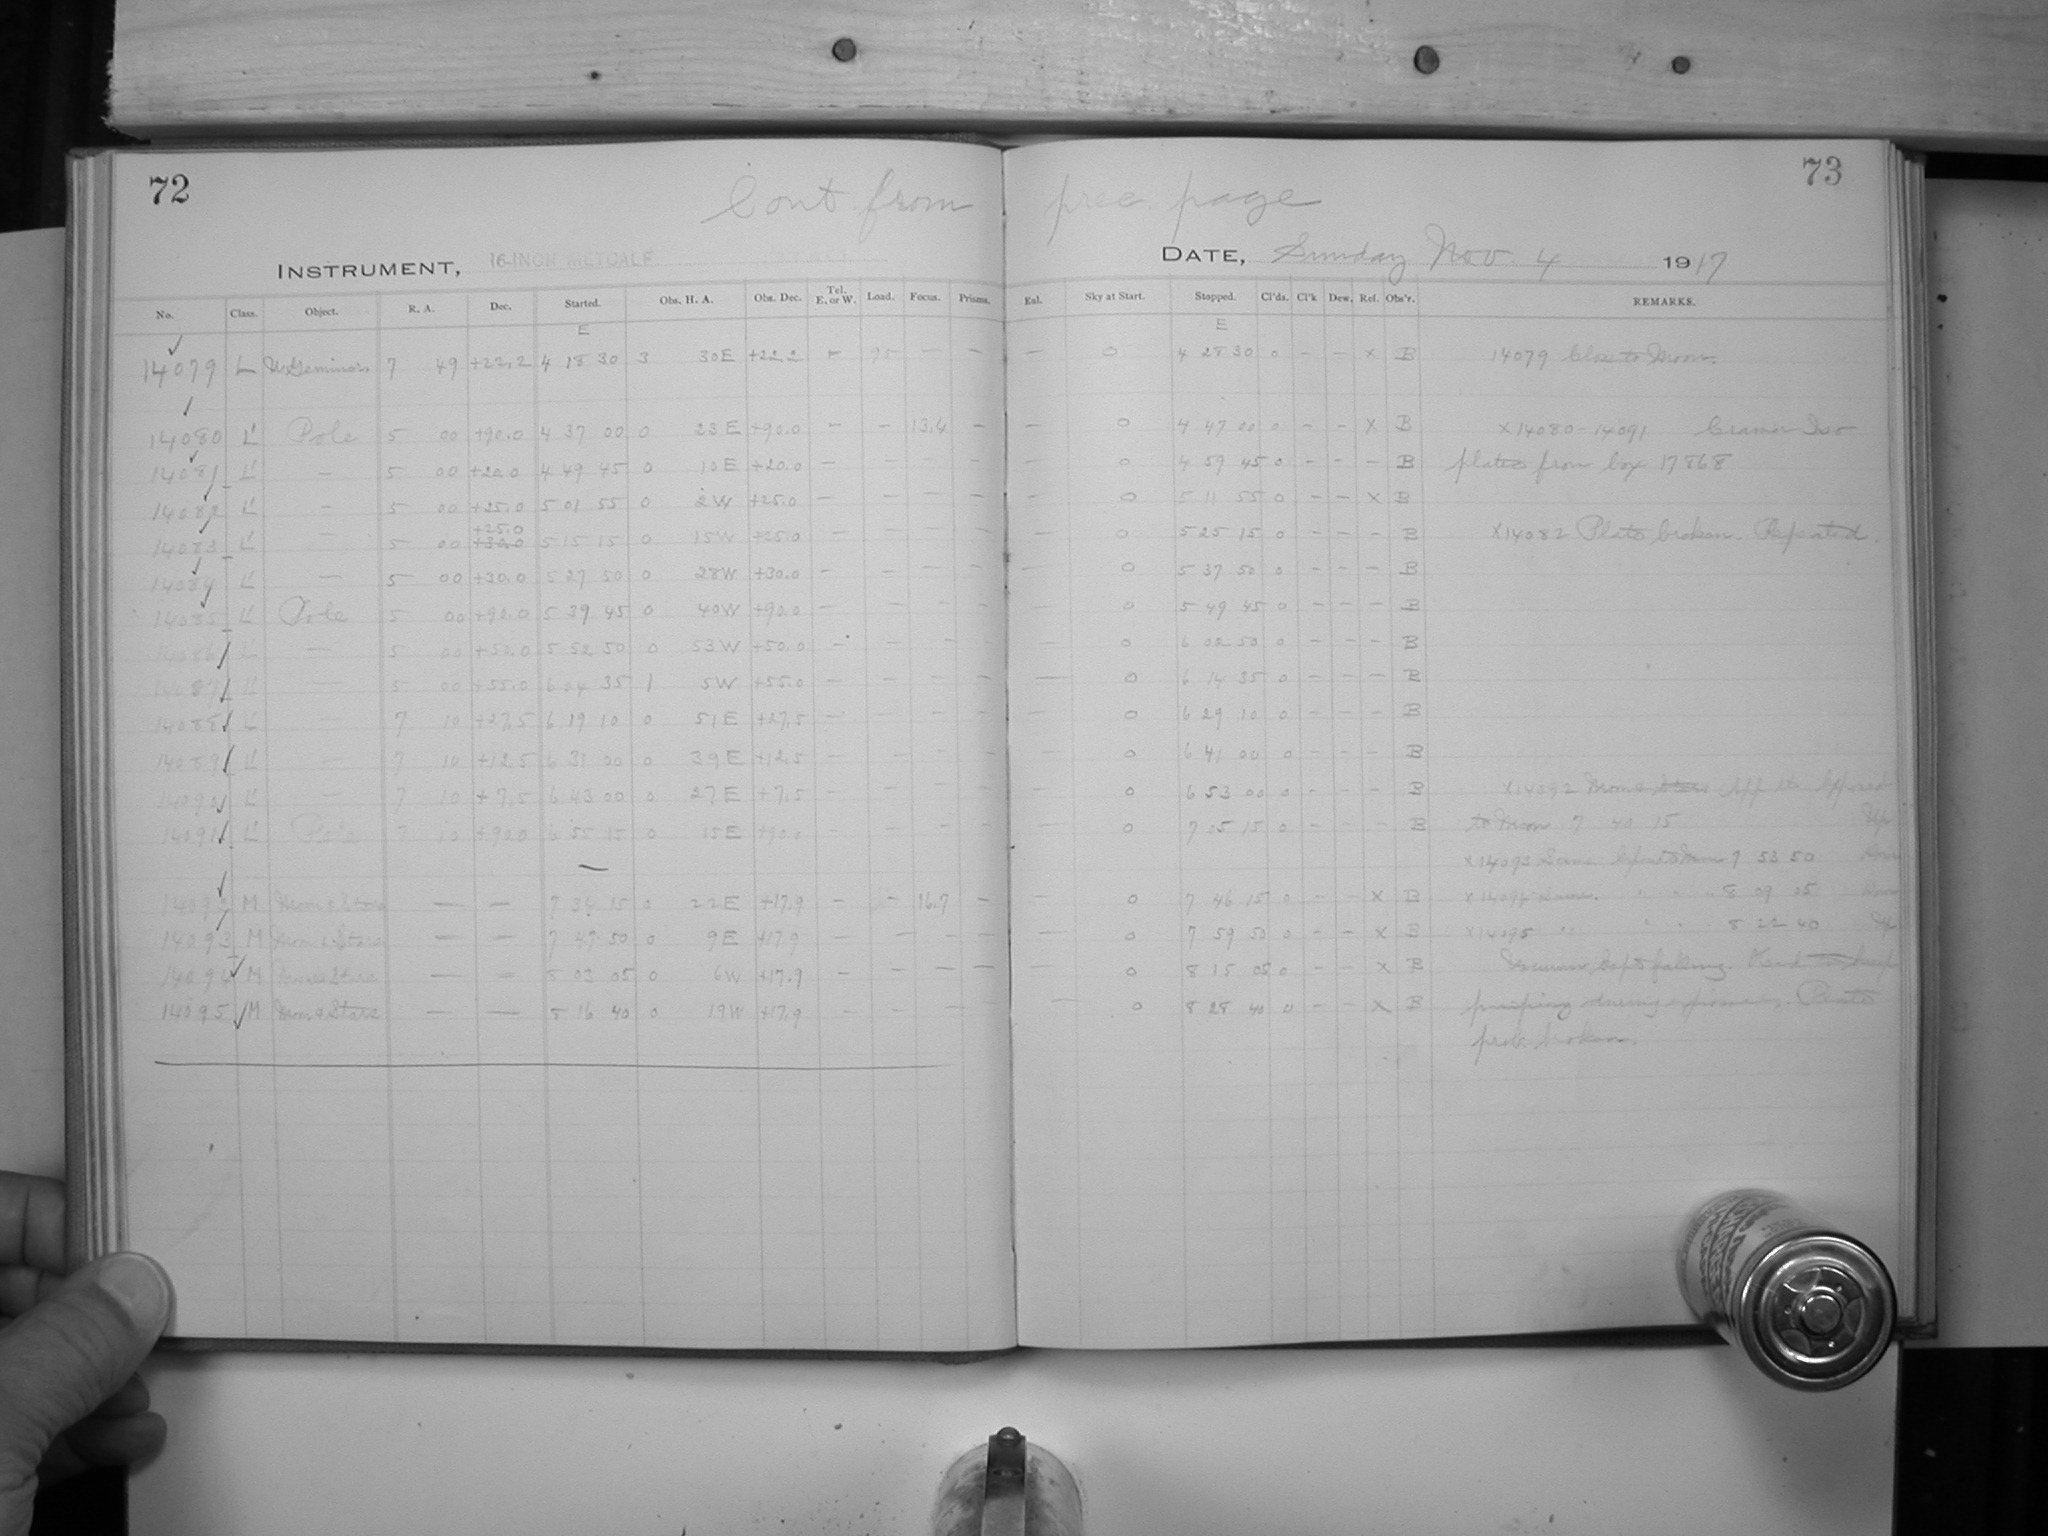 72
73
Cont from prec. page
INSTRUMENT, 16-INCH METCALF
DATE, Sunday Nov. 4 1917
No. Class. Object. R. A. Dec. Started. Obs. H. A. Obs. Dec. Tel. E. or W. Load. Focus. Prisms. Eal. Sky at Start. Stopped. Cl'ds. Cl'k Dew. Ref. Obs'r. REMARKS.
E E
14079 L U Geminor 7 49 +22.2 4 18 30 3 30E +22.2 – 75 – – – 0 4 28 30 0 – – x B 14079 Close to Moon.
14080 L' Pole 5 00 +90.0 4 37 00 0 23E +90.0 – – 13.4 – – 0 4 47 00 0 – – x B x14080-14091 Cramer Iso
14081 L' – 5 00 +20.0 4 49 45 0 10E +20.0 – – – – – 0 4 59 45 0 – – – B plates from box 17868
14082 L' – 5 00 +25.0 5 01 55 0 2W +25.0 – – – – – 0 5 11 55 0 – – x B
14083 L' – 5 00 +25.0 +30.0 5 15 15 0 15W +25.0 – – – – – 0 5 25 15 0 – – – B x14082 Plate broken. Repeated.
14084 L' – 5 00 +30.0 5 27 50 0 28W +30.0 – – – – – 0 5 37 50 0 – – – B
14085 L' Pole 5 00 +90.0 5 39 45 0 40W +90.0 – – – – – 0 5 49 45 0 – – – B
14086 L' – 5 00 +50.0 5 52 50 0 53W +50.0 – – – – – 0 6 02 50 0 – – – B
14087 L' – 5 00 +55.0 6 04 35 1 5W +55.0 – – – – – 0 6 14 35 0 – – – B
14088 L' – 7 10 +27.5 6 19 10 0 51E +27.5 – – – – – 0 6 29 10 0 – – – B
14089 L' – 7 10 +12.5 6 31 00 0 39E +12.5 – – – – – 0 6 41 00 0 – – – B
14090 L' – 7 10 +7.5 6 43 00 0 27E +7.5 – – – – – 0 6 53 00 0 – – – B x14092 Moon & Stars
14091 L' Pole 7 10 +90.0 6 55 15 0 15E +90.0 – – – – – 0 7 05 15 0 – – – B to Moon 7 40 15 Up
x14093 Same. 7 53 50
14092 M Moon & Stars — — 7 34 15 0 22E +17.9 – – 16.7 – – 0 7 46 15 0 – – x B x14094 Same. " " " 8 09 05
14093 M Moon & Stars — — 7 47 50 0 9E +17.9 – – – – – 0 7 59 50 0 – – x B x14095 " " " 8 22 40 Up
14094 M Moon & Stars — — 8 03 05 0 6W +17.9 – – – – 0 8 15 05 0 – – x B kept falling. Had to keep
14095 M Moon & Stars — — 8 16 40 0 19W +17.9 – – – – – 0 8 28 40 0 – – x B pumping during exposures. Plate
prob. broken.